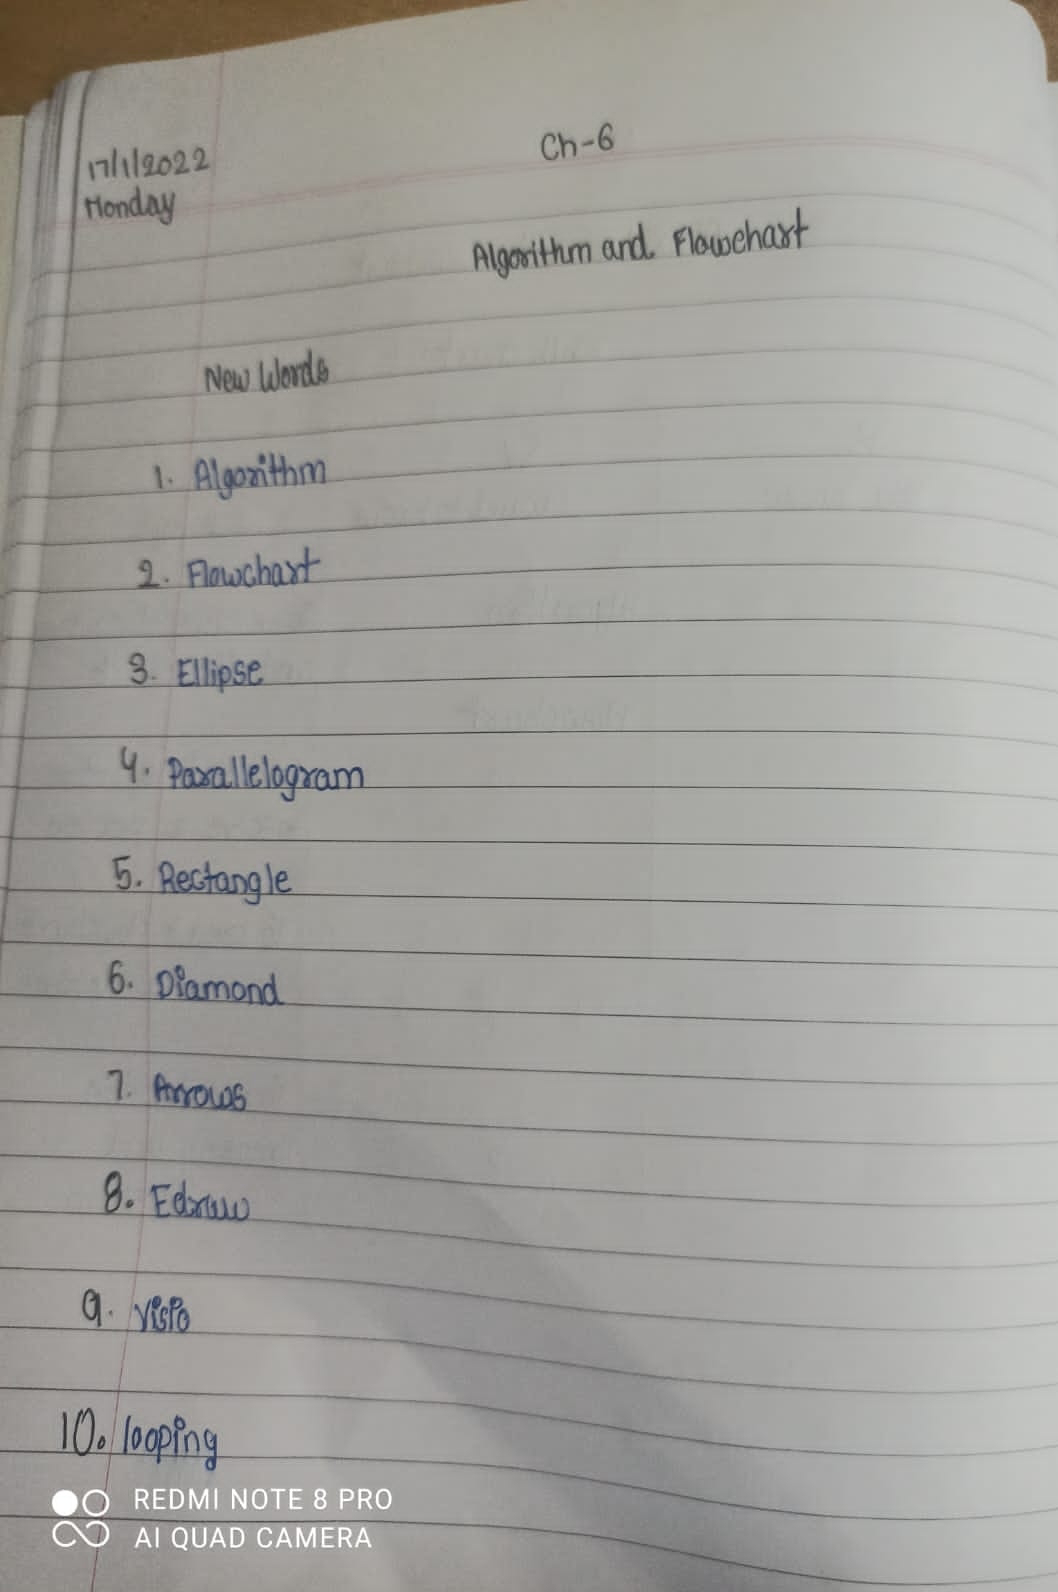 17/1/2022
Monday
Ch-6
Algorithm and Flowchart
New Words
1. Algorithm
2. Flowchart
3. Ellipse
4. Parallelogram
5. Rectangle
6. Diamond
7. Arrows
8. Edraw
9. Visio
10. looping
REDMI NOTE 8 PRO
AI QUAD CAMERA